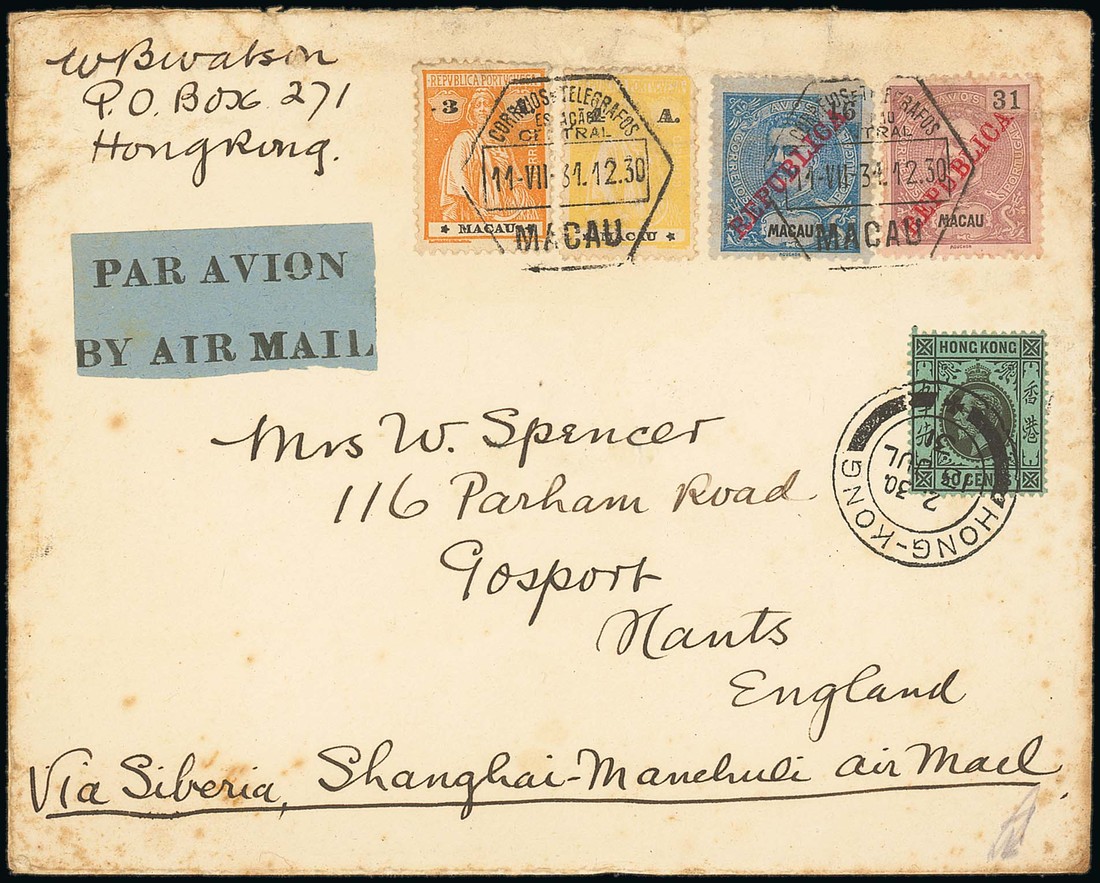 W B Watson
P.O. Box 271
Hongkong.
REPVBLICA PORTVGUESA
3
MACAU
A.
MACAU
CORREIOS E TELEGRAFOS
ESTAÇÃO
CENTRAL
11-VII-31.12.30
MACAU
AVOS
6
REPUBLICA
MACAU
CORREIOS E TELEGRAFOS
CENTRAL
11-VII-31.12.30
MACAU
AVOS
31
REPUBLICA
MACAU
PAR AVION
BY AIR MAIL
HONG KONG
香港
CENTS
HONG-KONG
2.30
JUL
Mrs W. Spencer
116 Parham Road
Gosport
Hants
England
Via Siberia, Shanghai-Manchuli air Mail